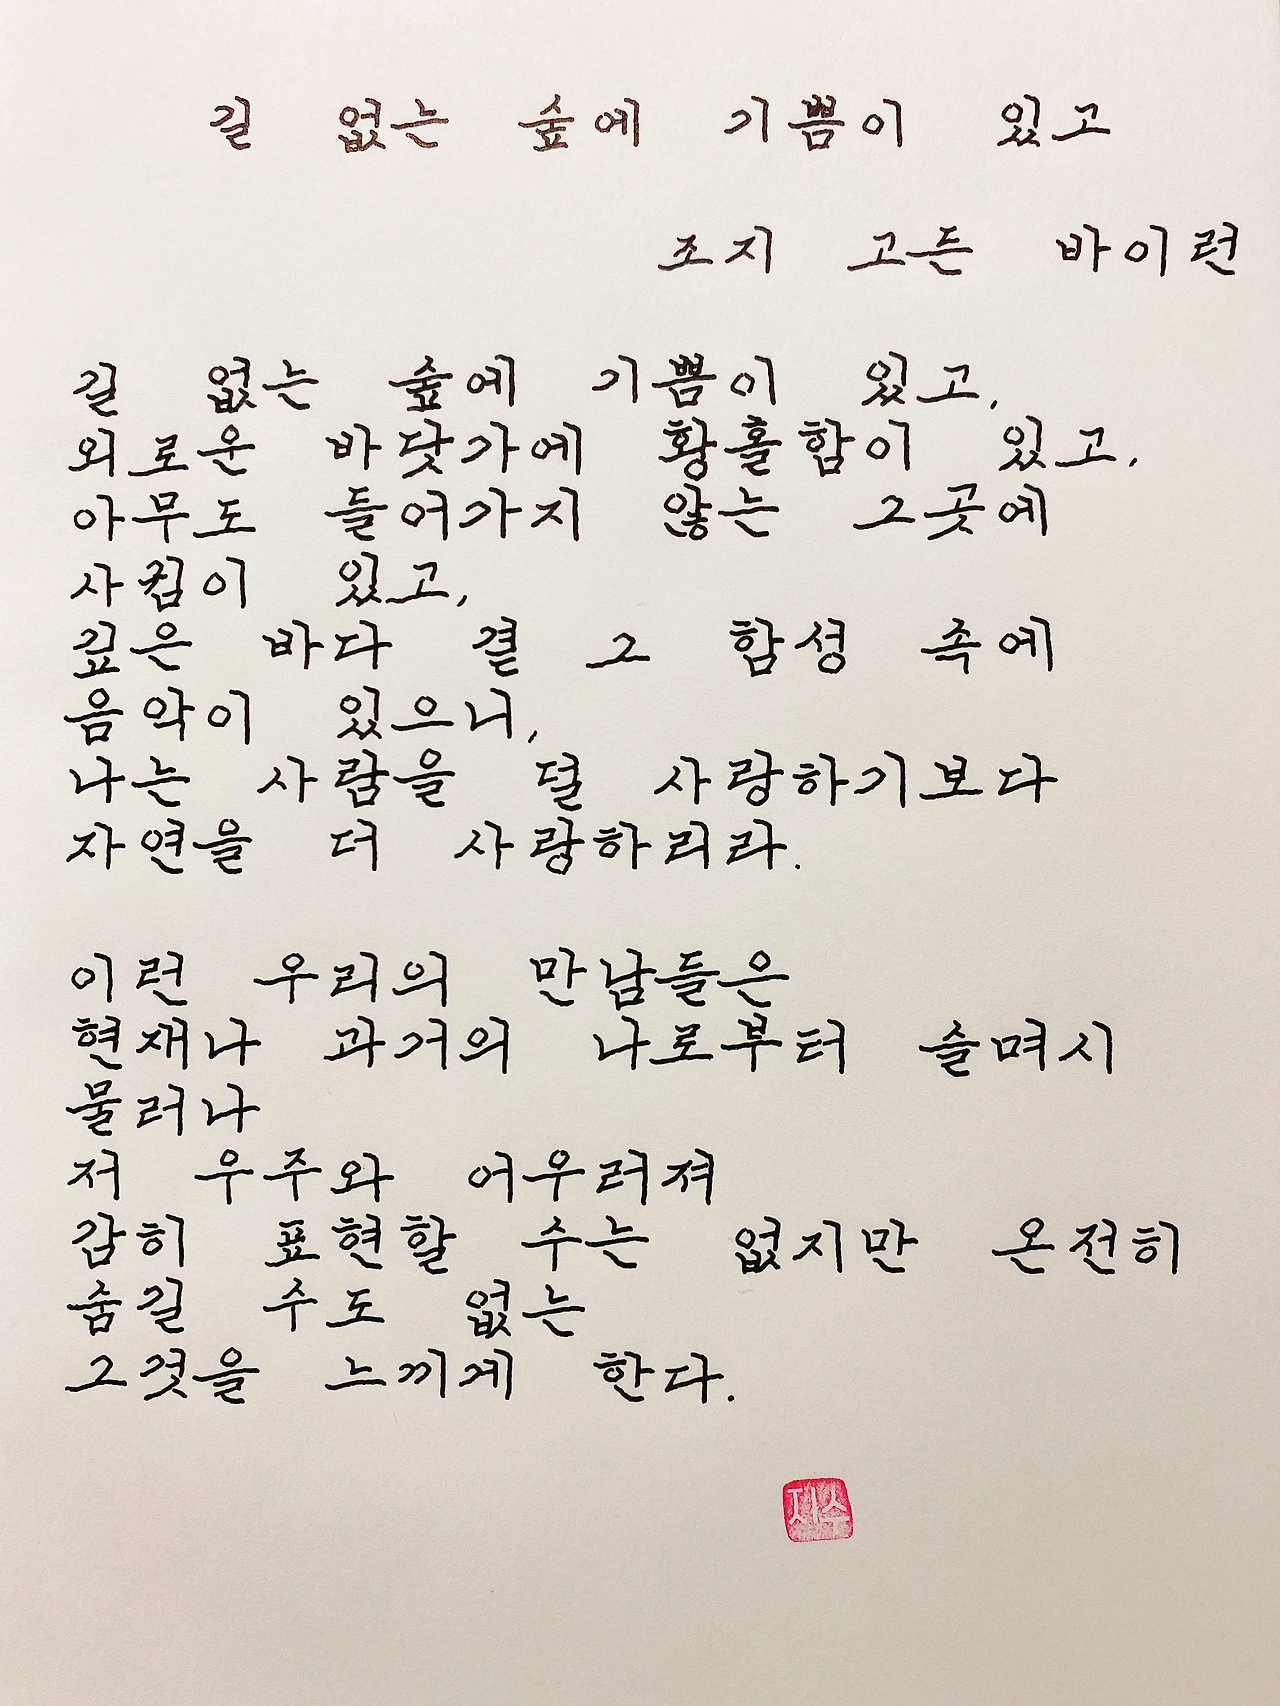 길 없는 숲에 기쁨이 있고
조지 고든 바이런
길 없는 숲에 기쁨이 있고,
외로운 바닷가에 황홀함이 있고,
아무도 들어가지 않는 그곳에
사귐이 있고,
깊은 바다 곁 그 함성 속에
음악이 있으니,
나는 사람을 덜 사랑하기보다
자연을 더 사랑하리라.
이런 우리의 만남들은
현재나 과거의 나로부터 슬며시
물러나
저 우주와 어우러져
감히 표현할 수는 없지만 온전히
숨길 수도 없는
그것을 느끼게 한다.